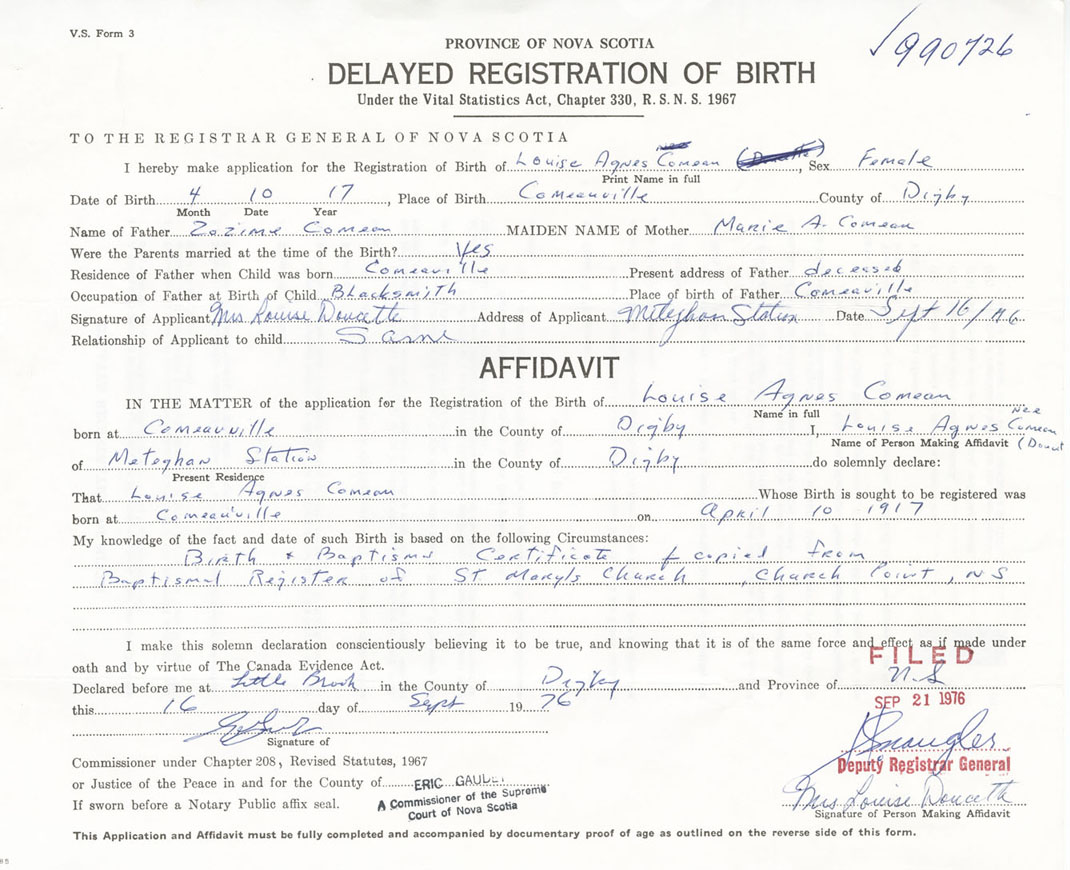 V.S. Form 3
990726
PROVINCE OF NOVA SCOTIA
DELAYED REGISTRATION OF BIRTH
Under the Vital Statistics Act, Chapter 330, R.S.N.S. 1967
TO THE REGISTRAR GENERAL OF NOVA SCOTIA
I hereby make application for the Registration of Birth of Louise Agnes Comeau, Sex Female
Print Name in full
Date of Birth 4 10 17, Place of Birth Comeauville County of Digby
Month Date Year
Name of Father Zozime Comeau MAIDEN NAME of Mother Marie A. Comeau
Were the Parents married at the time of the Birth? Yes
Residence of Father when Child was born Comeauville Present address of Father deceased
Occupation of Father at Birth of Child Blacksmith Place of birth of Father Comeauville
Signature of Applicant Mrs Louise Doucette Address of Applicant Meteghan Station Date Sept 16/
Relationship of Applicant to child Same
AFFIDAVIT
IN THE MATTER of the application for the Registration of the Birth of Louise Agnes Comeau
Name in full
nee
born at Comeauville in the County of Digby I, Louise Agnes Comeau
Name of Person Making Affidavit (Doucet
of Meteghan Station in the County of Digby do solemnly declare:
Present Residence
That Louise Agnes Comeau Whose Birth is sought to be registered was
born at Comeauville on April 10 1917
My knowledge of the fact and date of such Birth is based on the following Circumstances:
Birth & Baptisms Certificate copied from
Baptismal Register of St Mary's Church, Church Point, NS
I make this solemn declaration conscientiously believing it to be true, and knowing that it is of the same force and effect as if made under
oath and by virtue of The Canada Evidence Act.
FILED
Declared before me at Little Brook in the County of Digby and Province of N.S
SEP 21 1976
this 16 day of Sept 19 76
Signature of
Commissioner under Chapter 208, Revised Statutes, 1967
Deputy Registrar General
or Justice of the Peace in and for the County of ERIC
A Commissioner of the Supreme
Court of Nova Scotia
If sworn before a Notary Public affix seal.
Mrs Louise Doucette
Signature of Person Making Affidavit
This Application and Affidavit must be fully completed and accompanied by documentary proof of age as outlined on the reverse side of this form.